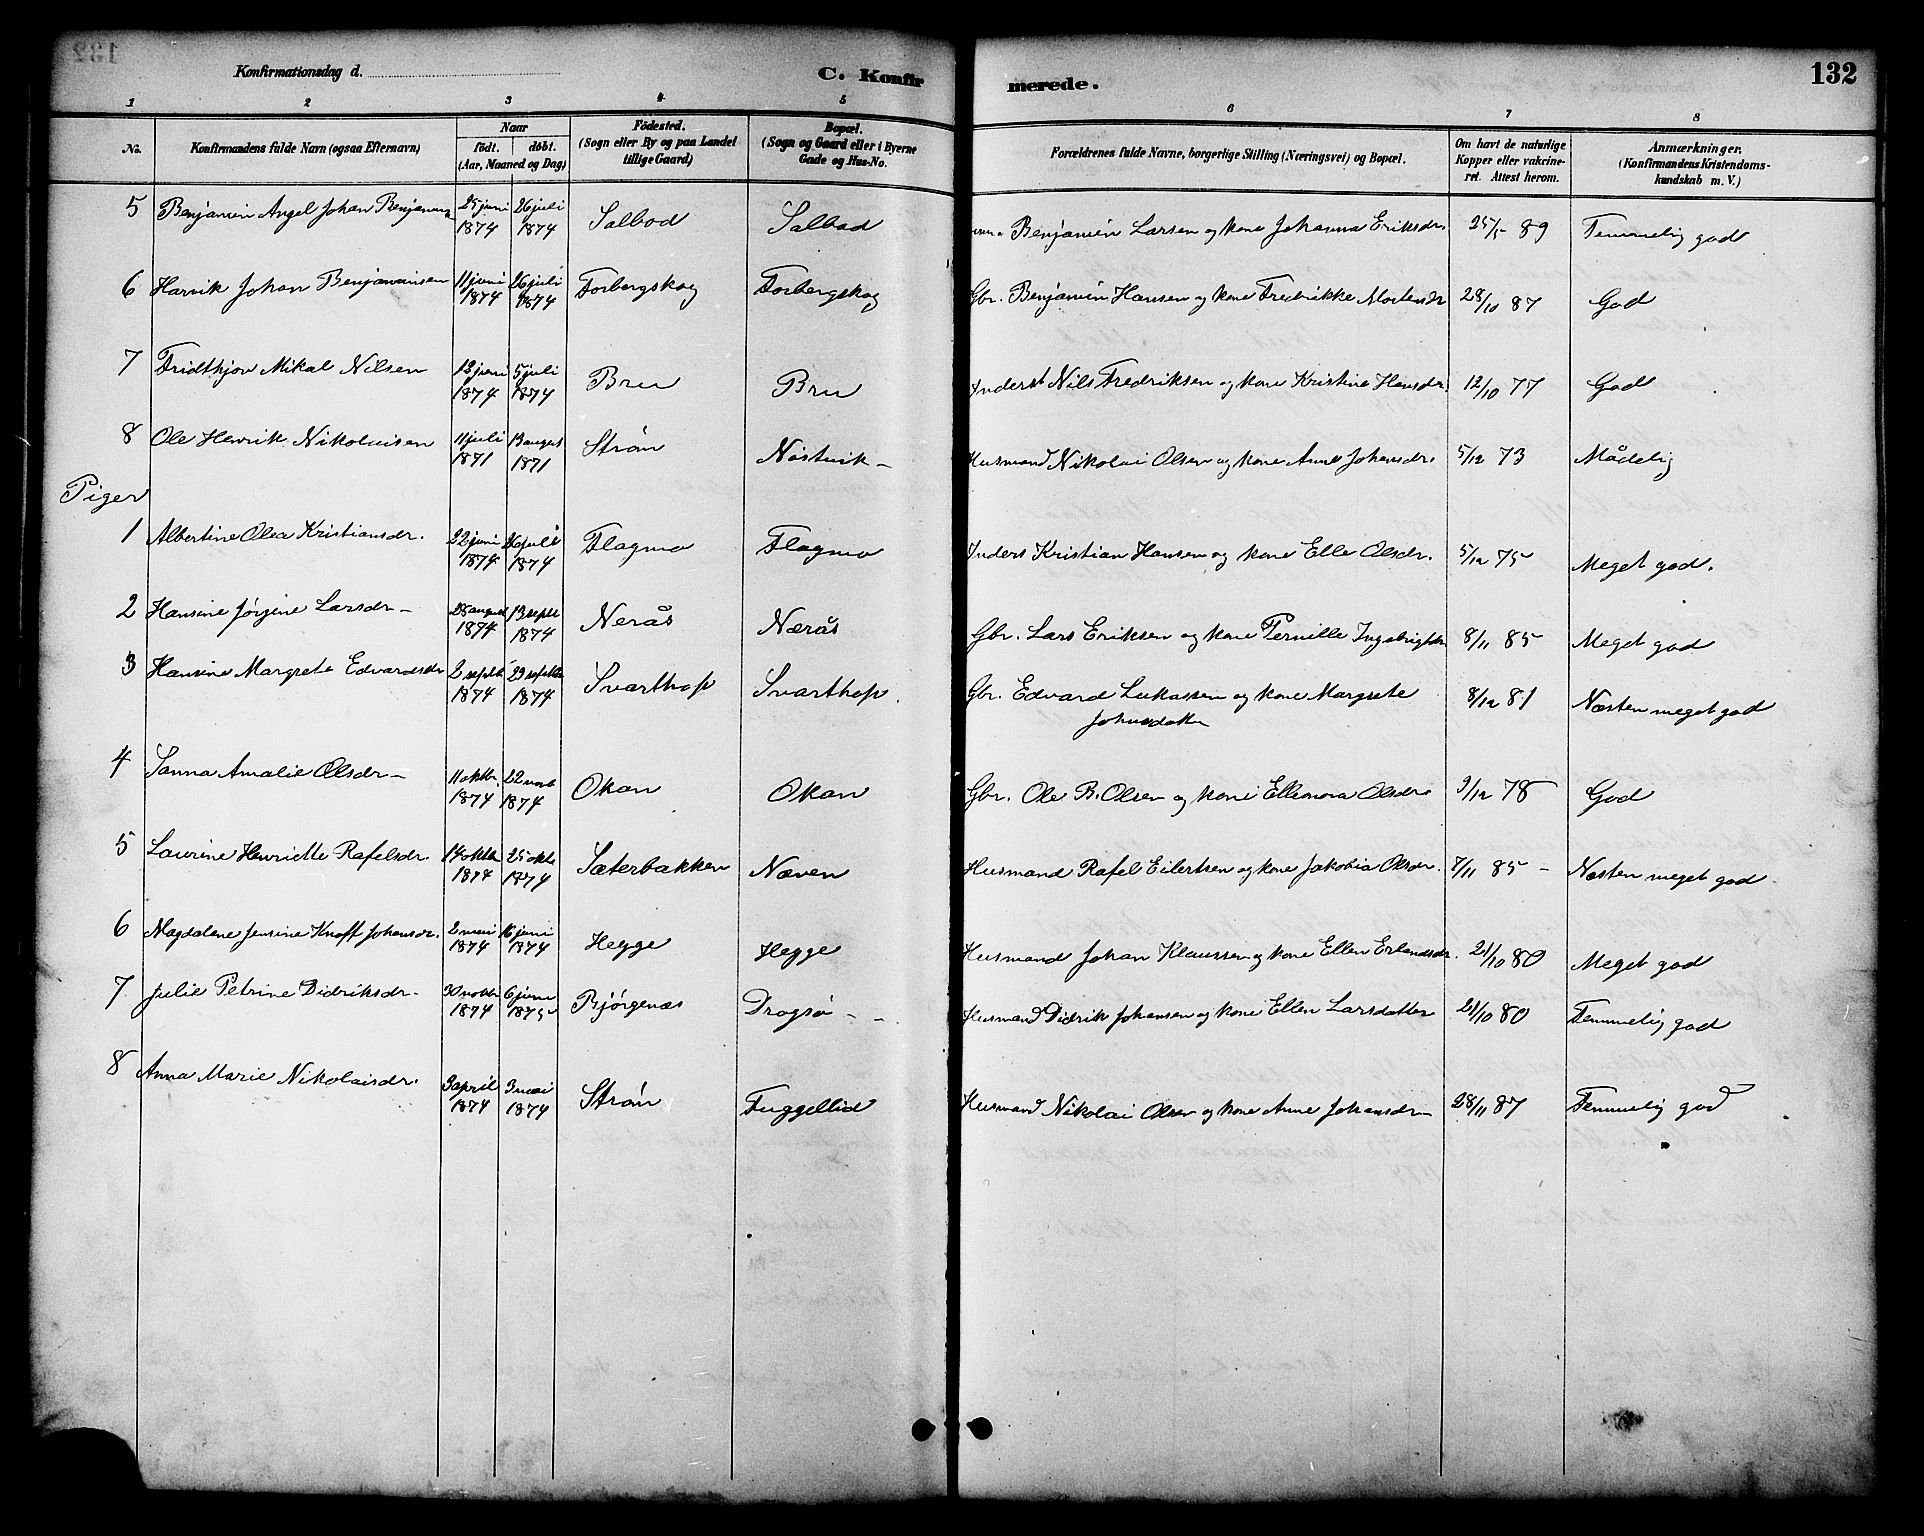 132
Konfirmationsdag d.
C. Konfirmerede.
1 2 3 4 5 6 7 8
No. Konfirmandens fulde Navn (ogsaa Efternavn) Naar födt. döbt. (Aar, Maaned og Dag) Födested. (Sogn eller By og paa Landet tillige Gaard) Bopæl. (Sogn og Gaard eller i Byerne Gade og Hus-No. Forældrenes fulde Navne, borgerlige Stilling (Næringsvei) og Bopæl. Om havt de naturlige Kopper eller vakcineret. Attest herom. Anmærkninger. (Konfirmandens Kristendomskundskab m. V.)
5 Benjamin Angel Johan 25 juni 1874 26 juli 1874 Salbod Salbod Benjamin Larsen og kone Johanna Eriksdr 25/5 89 Temmelig god
6 Harvik Johan Benjaminsen 11 juni 1874 26 juli 1874 Forbergskog Forbergskog Gbr. Benjamin Hansen og kone Fredrikke Mortensdr 28/10 87 God
7 Fridthjov Mikal Nilsen 13 juni 1874 5 juli 1874 Bru Bru Inderst Nils Fredriksen og kone Kristine Hansdr. 12/10 77 God
8 Ole Henrik Nikolaisen 11 juli 1871 13 august 1871 Strøm Nøstvik - Husmand Nikolai Olsen og kone Anne Johansdr. 5/12 73 Mådelig
Piger
1 Albertine Olea Kristiansdr. 22 juni 1874 26 juli 1874 Flagmo Flagmo Inderst Kristian Hansen og kone Elle Olsdr. 5/12 75 Meget god.
2 Hansine Jørgine Larsdr - 28 august 1874 13 septbr 1874 Nerås Nærås Gbr. Lars Eriksen og kone Pernille Ingebrigtsdr 8/11 85 Meget god
3 Hansine Margrete Edvardsdr 2 septbr 1874 29 septbr 1874 Svarthop Svarthop. Gbr. Edvard Lukassen og kone Margrete Johnsdatter 8/12 81 Næsten meget god
4 Sanna Amalie Olsdr - 11 oktbr. 1874 22 novb 1874 Okan Okan Gbr. Ole B. Olsen og kone Ellenora Olsdr 9/12 78 God
5 Laurine Henriette Rafelsdr. 14 oktbr 1874 25 oktb 1874 Sæterbakken Næven Husmand Rafel Eilertsen og kone Jakobia Olsdr. 7/11 85 - Næsten meget god
6 Magdalene Jensine Knoff Johansdr. 2 mai 1874 16 juni 1874 Hegge Hegge Husmand Johan Klaussen og kone Ellen Erlandsdr. 21/10 80 Meget god
7 Julie Petrine Didriksdr - 30 novbr 1874 6 juni 1875 Bjørgenæs Dragsø - - Husmand Didrik Johansen og kone Ellen Larsdatter 21/10 80 Temmelig god
8 Anna Marie Nikolaisdr. 3 april 1874 3 mai 1874 Strøm Fuggellid Husmand Nikolai Olsen og kone Anne Johansdr - 28/11 87 Temmelig god